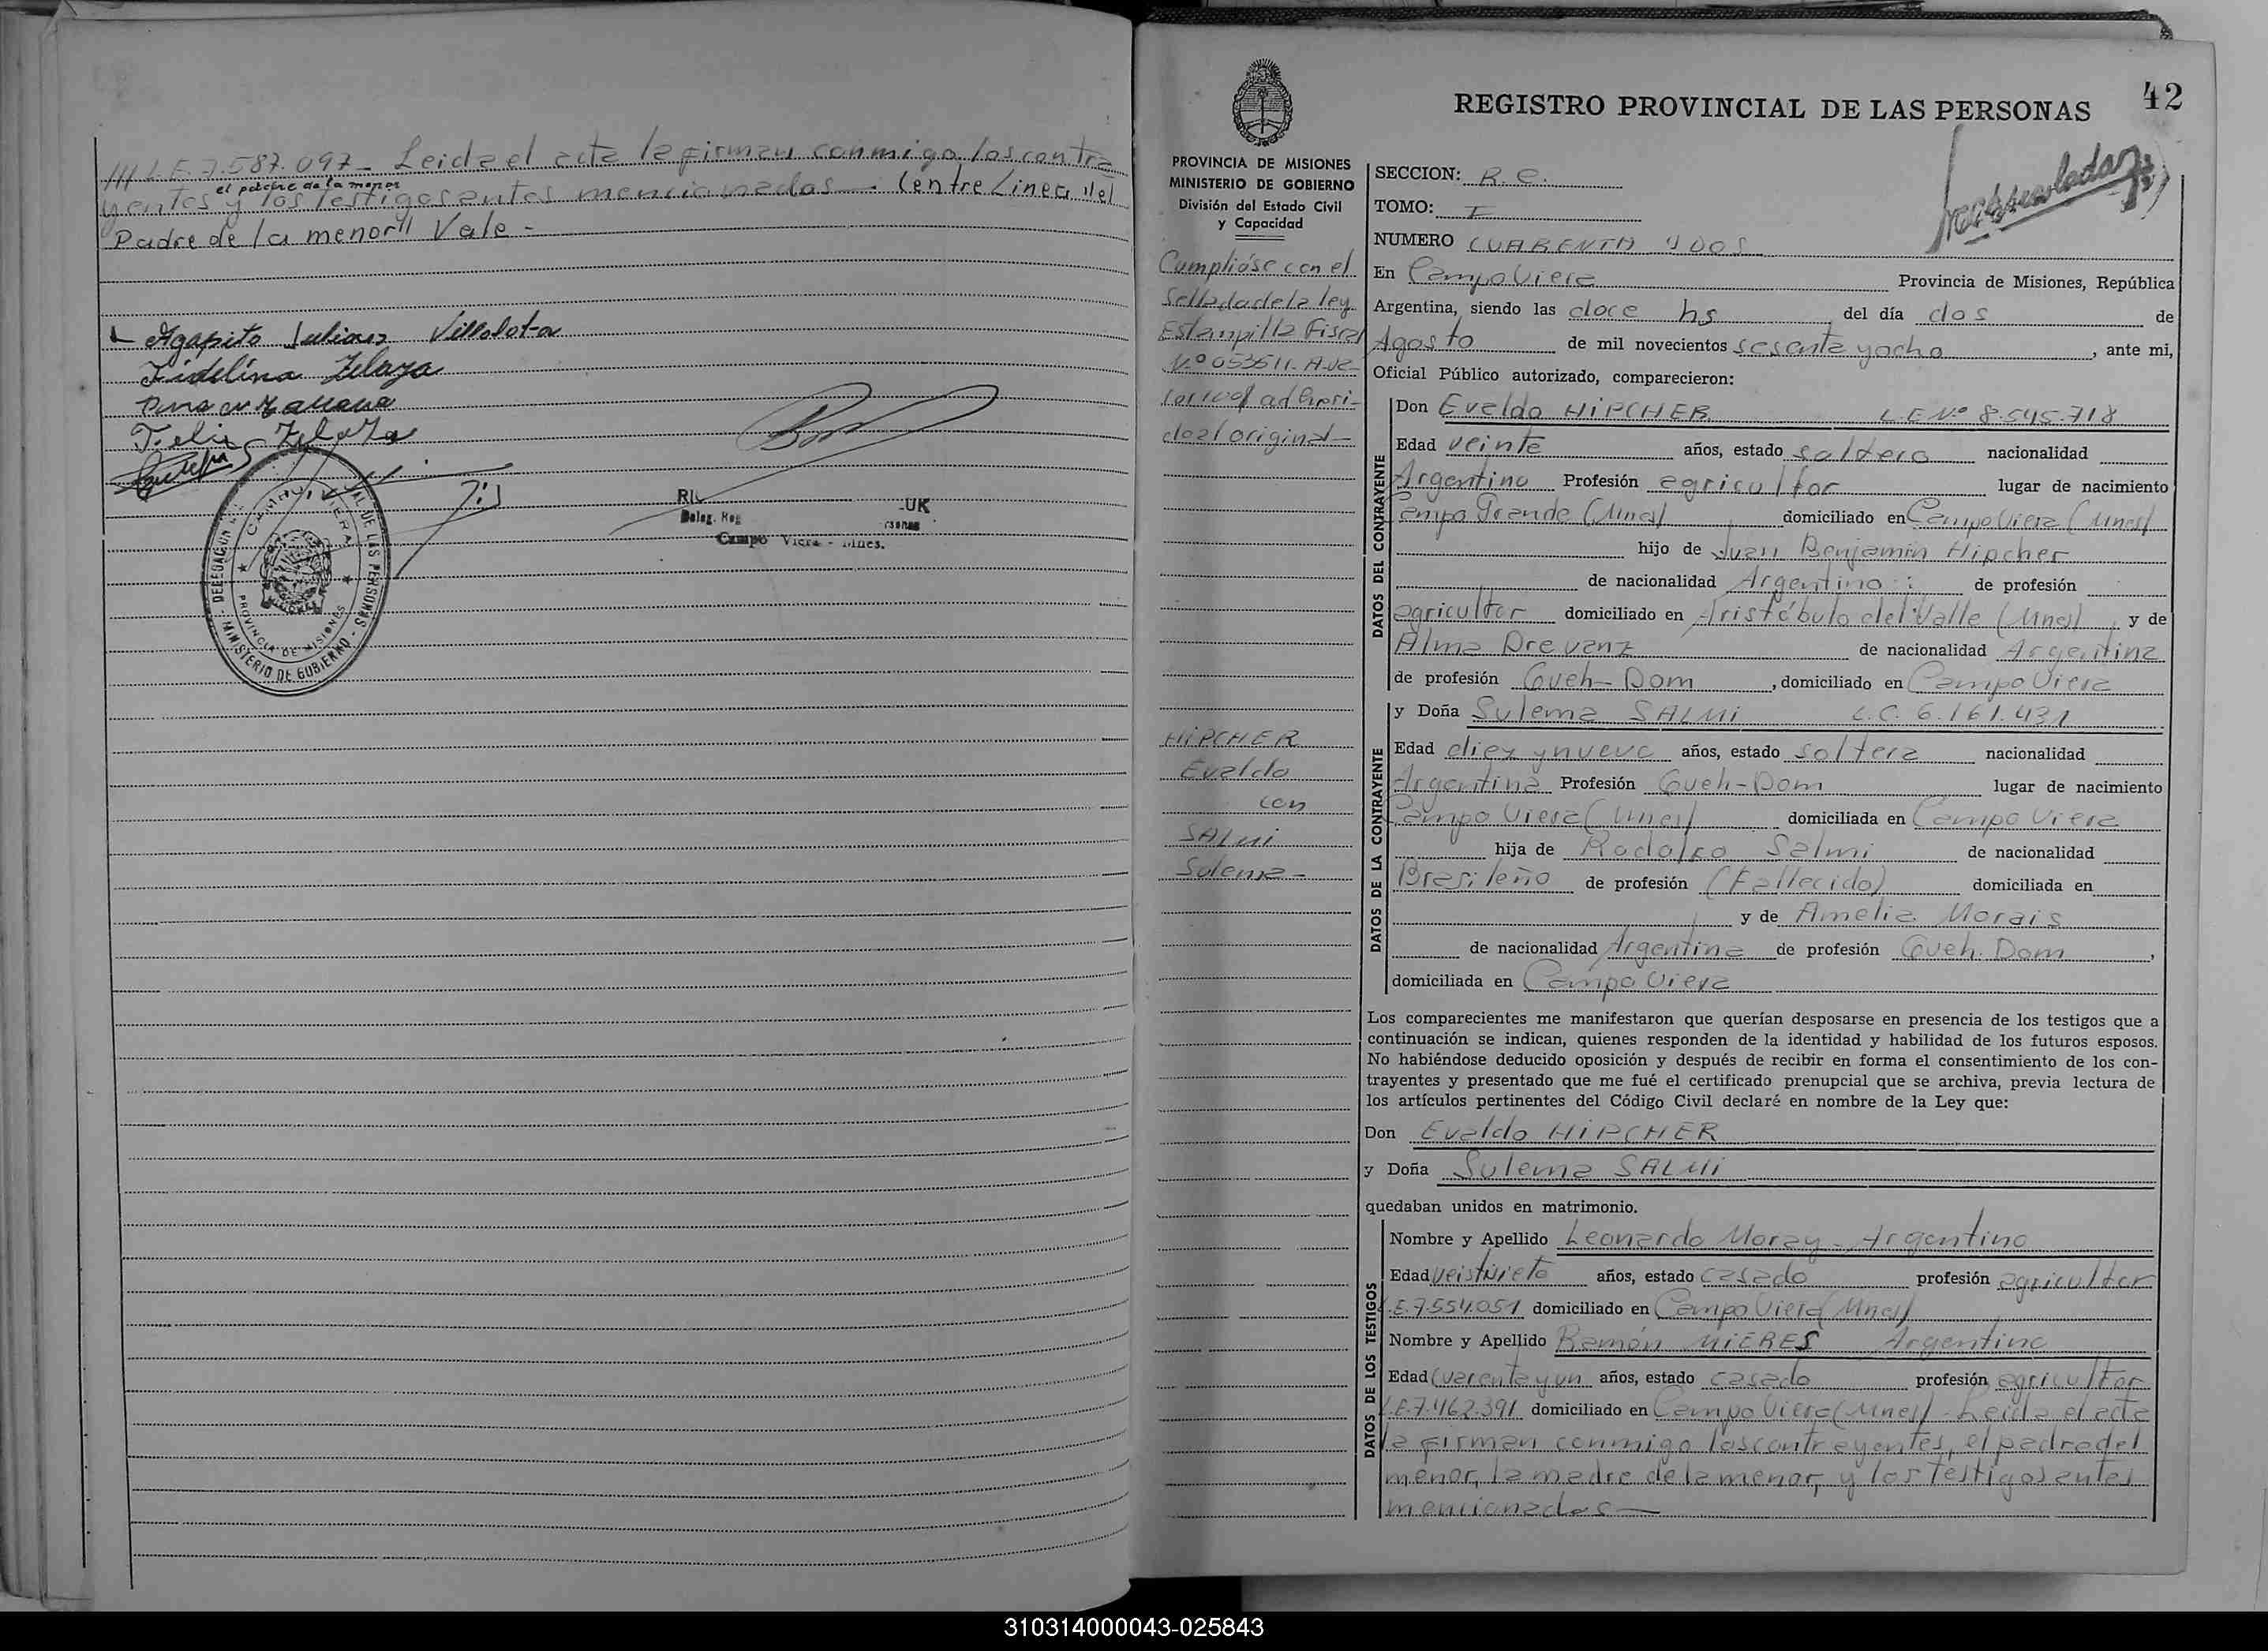 /// L.E. 7.587.097- Leida el acta la firman conmigo los contra
el padre de la menor
yentes y los testigos antes mencionados - (entre Linea "el
Padre de la menor" Vale -
Agapito Julian Villalota
Fidelina Zelaya
Felix Zelaya
DELEGACION
CAMPO VIERA
PROVINCIA DE MISIONES
MINISTERIO DE GOBIERNO
DE LAS PERSONAS
UK
Deleg. Reg
Campo Viera - Mnes.
42
REGISTRO PROVINCIAL DE LAS PERSONAS
PROVINCIA DE MISIONES
MINISTERIO DE GOBIERNO
División del Estado Civil
y Capacidad
Cumplióse con el
Sellado de la ley
Estampilla Fiscal
Nº 053511-A-
adheri-
do al original-
HIPCHER
Evaldo
con
SALMI
Sulema-
SECCION: R.C.
TOMO: I
NUMERO CUARENTA Y DOS
En Campo Viera Provincia de Misiones, República
Argentina, siendo las doce hs del día dos de
Agosto de mil novecientos sesenta y ocho, ante mi,
Oficial Público autorizado, comparecieron:
DATOS DEL CONTRAYENTE
Don Evaldo HIPCHER L.E Nº 8.545.718
Edad veinte años, estado soltero nacionalidad
Argentino Profesión agricultor lugar de nacimiento
Campo Grande (Mnes) domiciliado en Campo Viera (Mnes)
hijo de Juan Benjamín Hipcher
de nacionalidad Argentino de profesión
agricultor domiciliado en Aristóbulo del Valle (Mnes), y de
Alma Drevanz de nacionalidad Argentina
de profesión Queh-Dom, domiciliado en Campo Viera
DATOS DE LA CONTRAYENTE
y Doña Sulema SALMI L.C. 6.161.431
Edad diez y nueve años, estado soltera nacionalidad
Argentina Profesión Queh-Dom lugar de nacimiento
Campo Viera (Mnes) domiciliada en Campo Viera
hija de Rodolfo Salmi de nacionalidad
Brasileño de profesión (Fallecido) domiciliada en
y de Amelia Morais
de nacionalidad Argentina de profesión Queh. Dom,
domiciliada en Campo Viera
Los comparecientes me manifestaron que querían desposarse en presencia de los testigos que a
continuación se indican, quienes responden de la identidad y habilidad de los futuros esposos.
No habiéndose deducido oposición y después de recibir en forma el consentimiento de los con-
trayentes y presentado que me fué el certificado prenupcial que se archiva, previa lectura de
los artículos pertinentes del Código Civil declaré en nombre de la Ley que:
Don Evaldo HIPCHER
y Doña Sulema SALMI
quedaban unidos en matrimonio.
DATOS DE LOS TESTIGOS
Nombre y Apellido Leonardo Moray - Argentino
Edad años, estado casado profesión agricultor
L.E.7.554.051 domiciliado en Campo Viera (Mnes)
Nombre y Apellido Ramón MIERES Argentino
Edad Cuarenta y un años, estado casado profesión agricultor
L.E.7.462.391 domiciliado en Campo Viera (Mnes) - Leida el acta
la firman conmigo los contrayentes, el padre del
menor, la madre de la menor, y los testigos antes
mencionados-
310314000043-025843